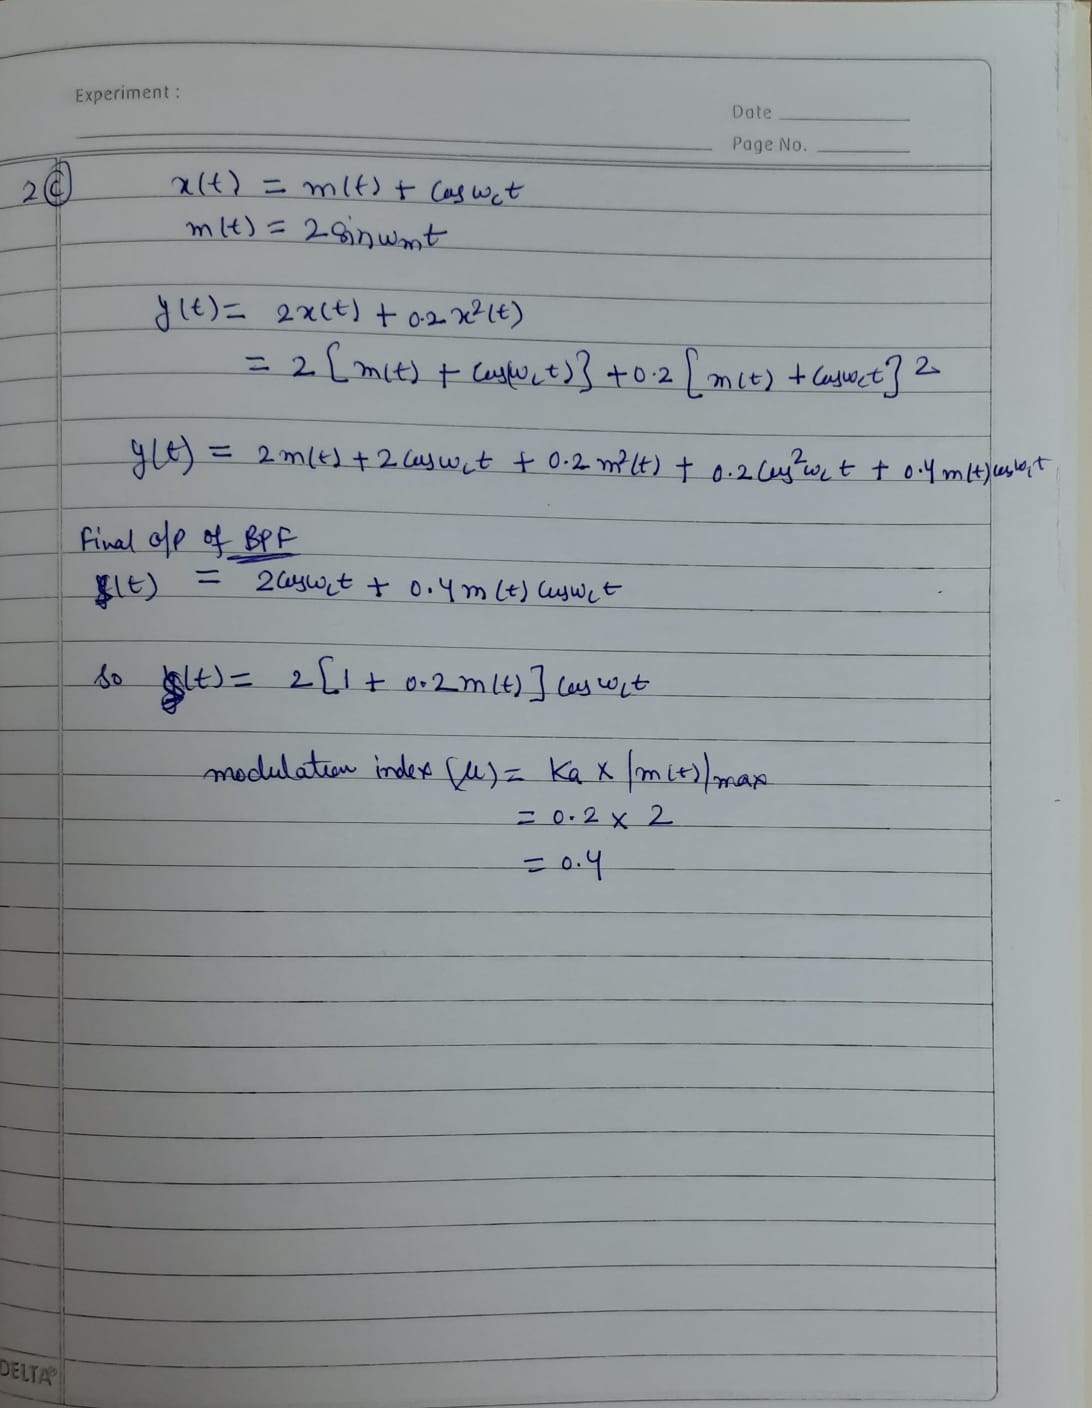 Experiment :
Date
Page No.
2 (C) x(t) = m(t) + Cos wct
m(t) = 2 Sin wmt
y(t) = 2x(t) + 0.2 x²(t)
= 2 [m(t) + Cos(wct)} + 0.2 [m(t) + Cos wct} 2
y(t) = 2m(t) + 2 Cos wct + 0.2 m²(t) + 0.2 Cos² wct + 0.4 m(t) cos wct
Final o/p of BPF
(t) = 2 Cos wct + 0.4 m(t) Cos wct
So (t) = 2 [1 + 0.2 m(t)] Cos wct
modulation index (μ) = Ka x |m(t)|max
= 0.2 x 2
= 0.4
DELTA®